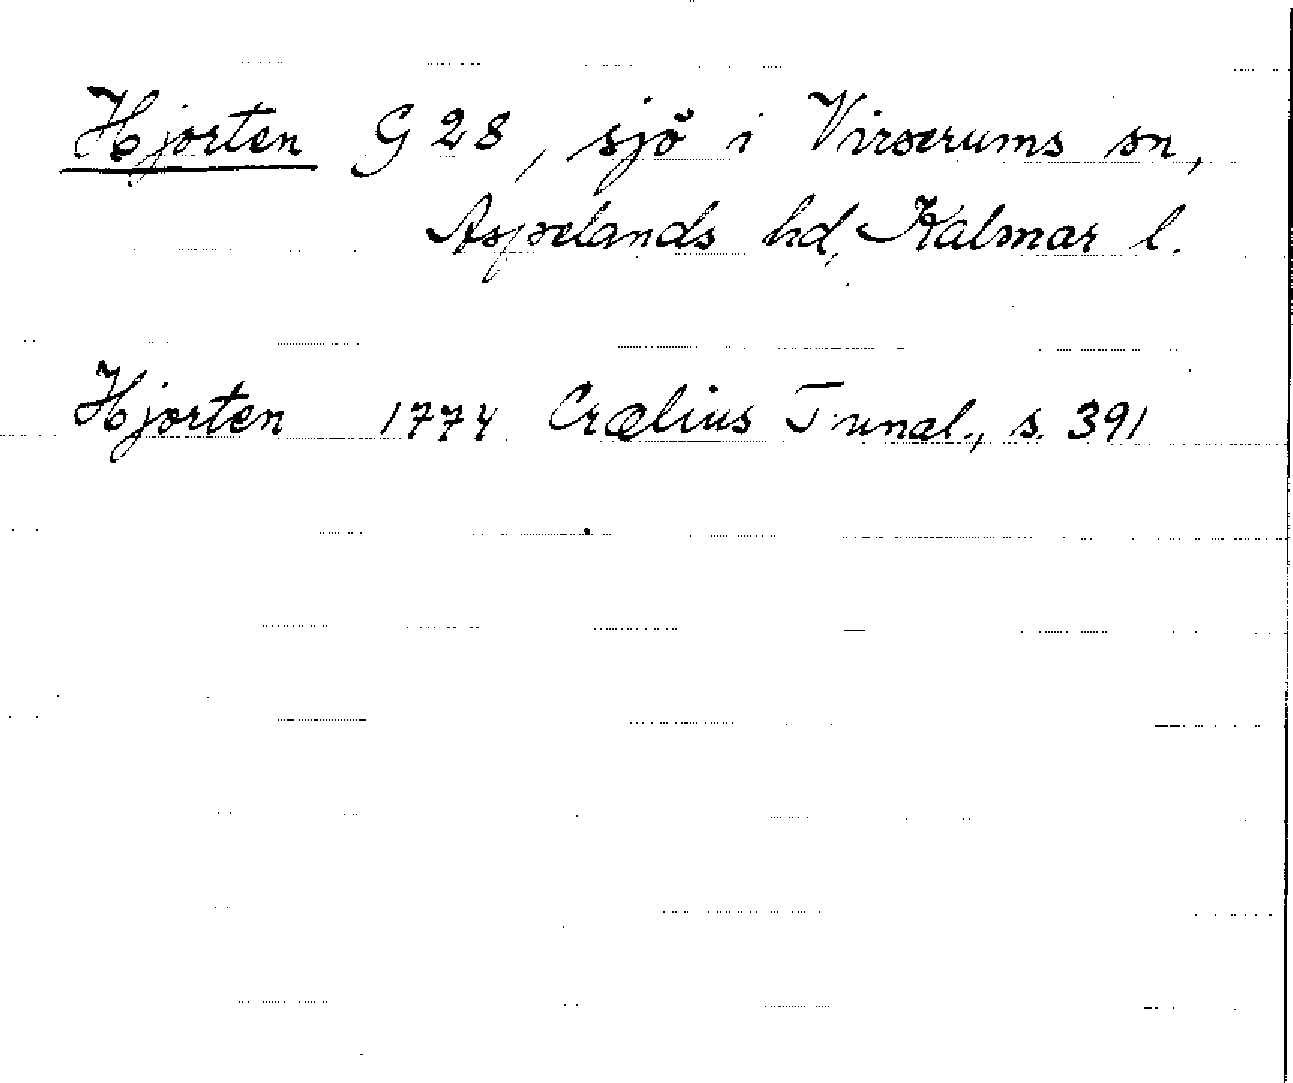 Hjorten G 28, sjö i Virserums sn,
Aspelands hd, Kalmar l.
Hjorten 1774 Crælius Tunal., s. 391